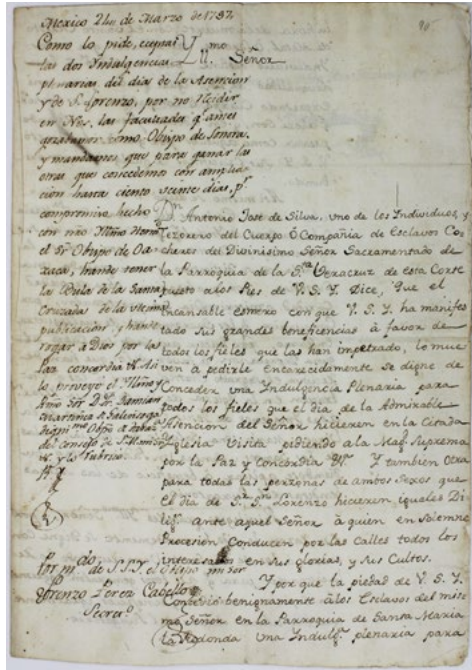 Mexico 24 de Marzo de 1787.
Como lo pide, excepto
las dos Indulgencias
plenarias del dia de la Asencion
y de S. Lorenzo, por no residir
en Nos, las facultades q.
como Obispo de Sonora.
y mandamos que para ganar las
otras que concedemos con amplia-
cion hasta ciento veinte dias, p.r
compromiso hecho
con nro Illmo Herm.o
el Sr Obispo de Oa-
xaca, hande tener
la Bula de la Santa
Cruzada de la ultima
publicacion, y hande
rogar a Dios por las
paz concordia &. Asi
lo proveyo el Illmo y
Rmo Sor D. Fr. Damian
Martinez de Galinsoga
digni.mo Obpo de
del Consejo de S. M.
&. y lo rubricó
Por m.do de S.S.Y. el Obispo mi Sor.
Lorenzo Perez Cabello
Secret.o
96
Yll.mo Señor
D.n Antonio José de Silva, uno de los Individuos, y
Tezorero del Cuerpo ó Compañia de Esclavos Co-
cheros del Divinisimo Señor Sacramentado de
la Parroquia de la S.ta Veracruz de esta Corte
puesto alos Pies de V. S. Y. Dice, Que el
incansable esmero con que V. S. Y. ha manifes
tado sus grandes beneficencias á favor de
todos los fieles que las han impetrado, lo mue
ven á pedirle encarecidamente se digne de
Conceder una Indulgencia Plenaria para
todos los fieles que el dia de la Admirable
Asencion del Señor hicieren en la Citada
Yglesia Visita pidiendo ála Mag. Suprema
por la Paz y Concordia &.a Y tambien Otra
para todas las perzonas de ambos Sexos que
el dia de S.r S.n Lorenzo hicieren iguales Di
lig.s ante aquel Señor á quien en Solemne
Procesion Conducen por las Calles todos los
interesados en sus glorias, y sus Cultos.
Y por que la piedad de V. S. Y.
Concedió benignamente álos Esclavos del mis
mo Señor en la Parroquia de Santa Maria
la Redonda una Indulg.a plenaria para